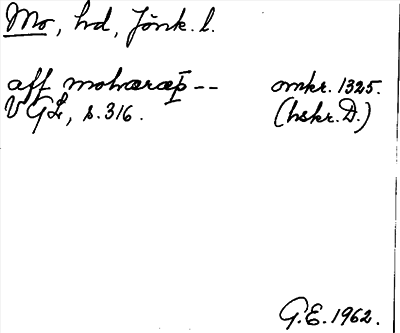 Mo, hd, Jönk. l.
aff mohæræþ -- omkr. 1325.
VGL, s. 316. (hskr. D.)
G.E. 1962.